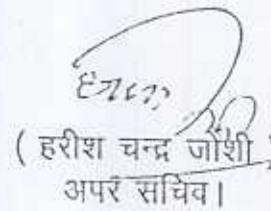 ( हरीश चन्द्र जोशी )
अपर सचिव।